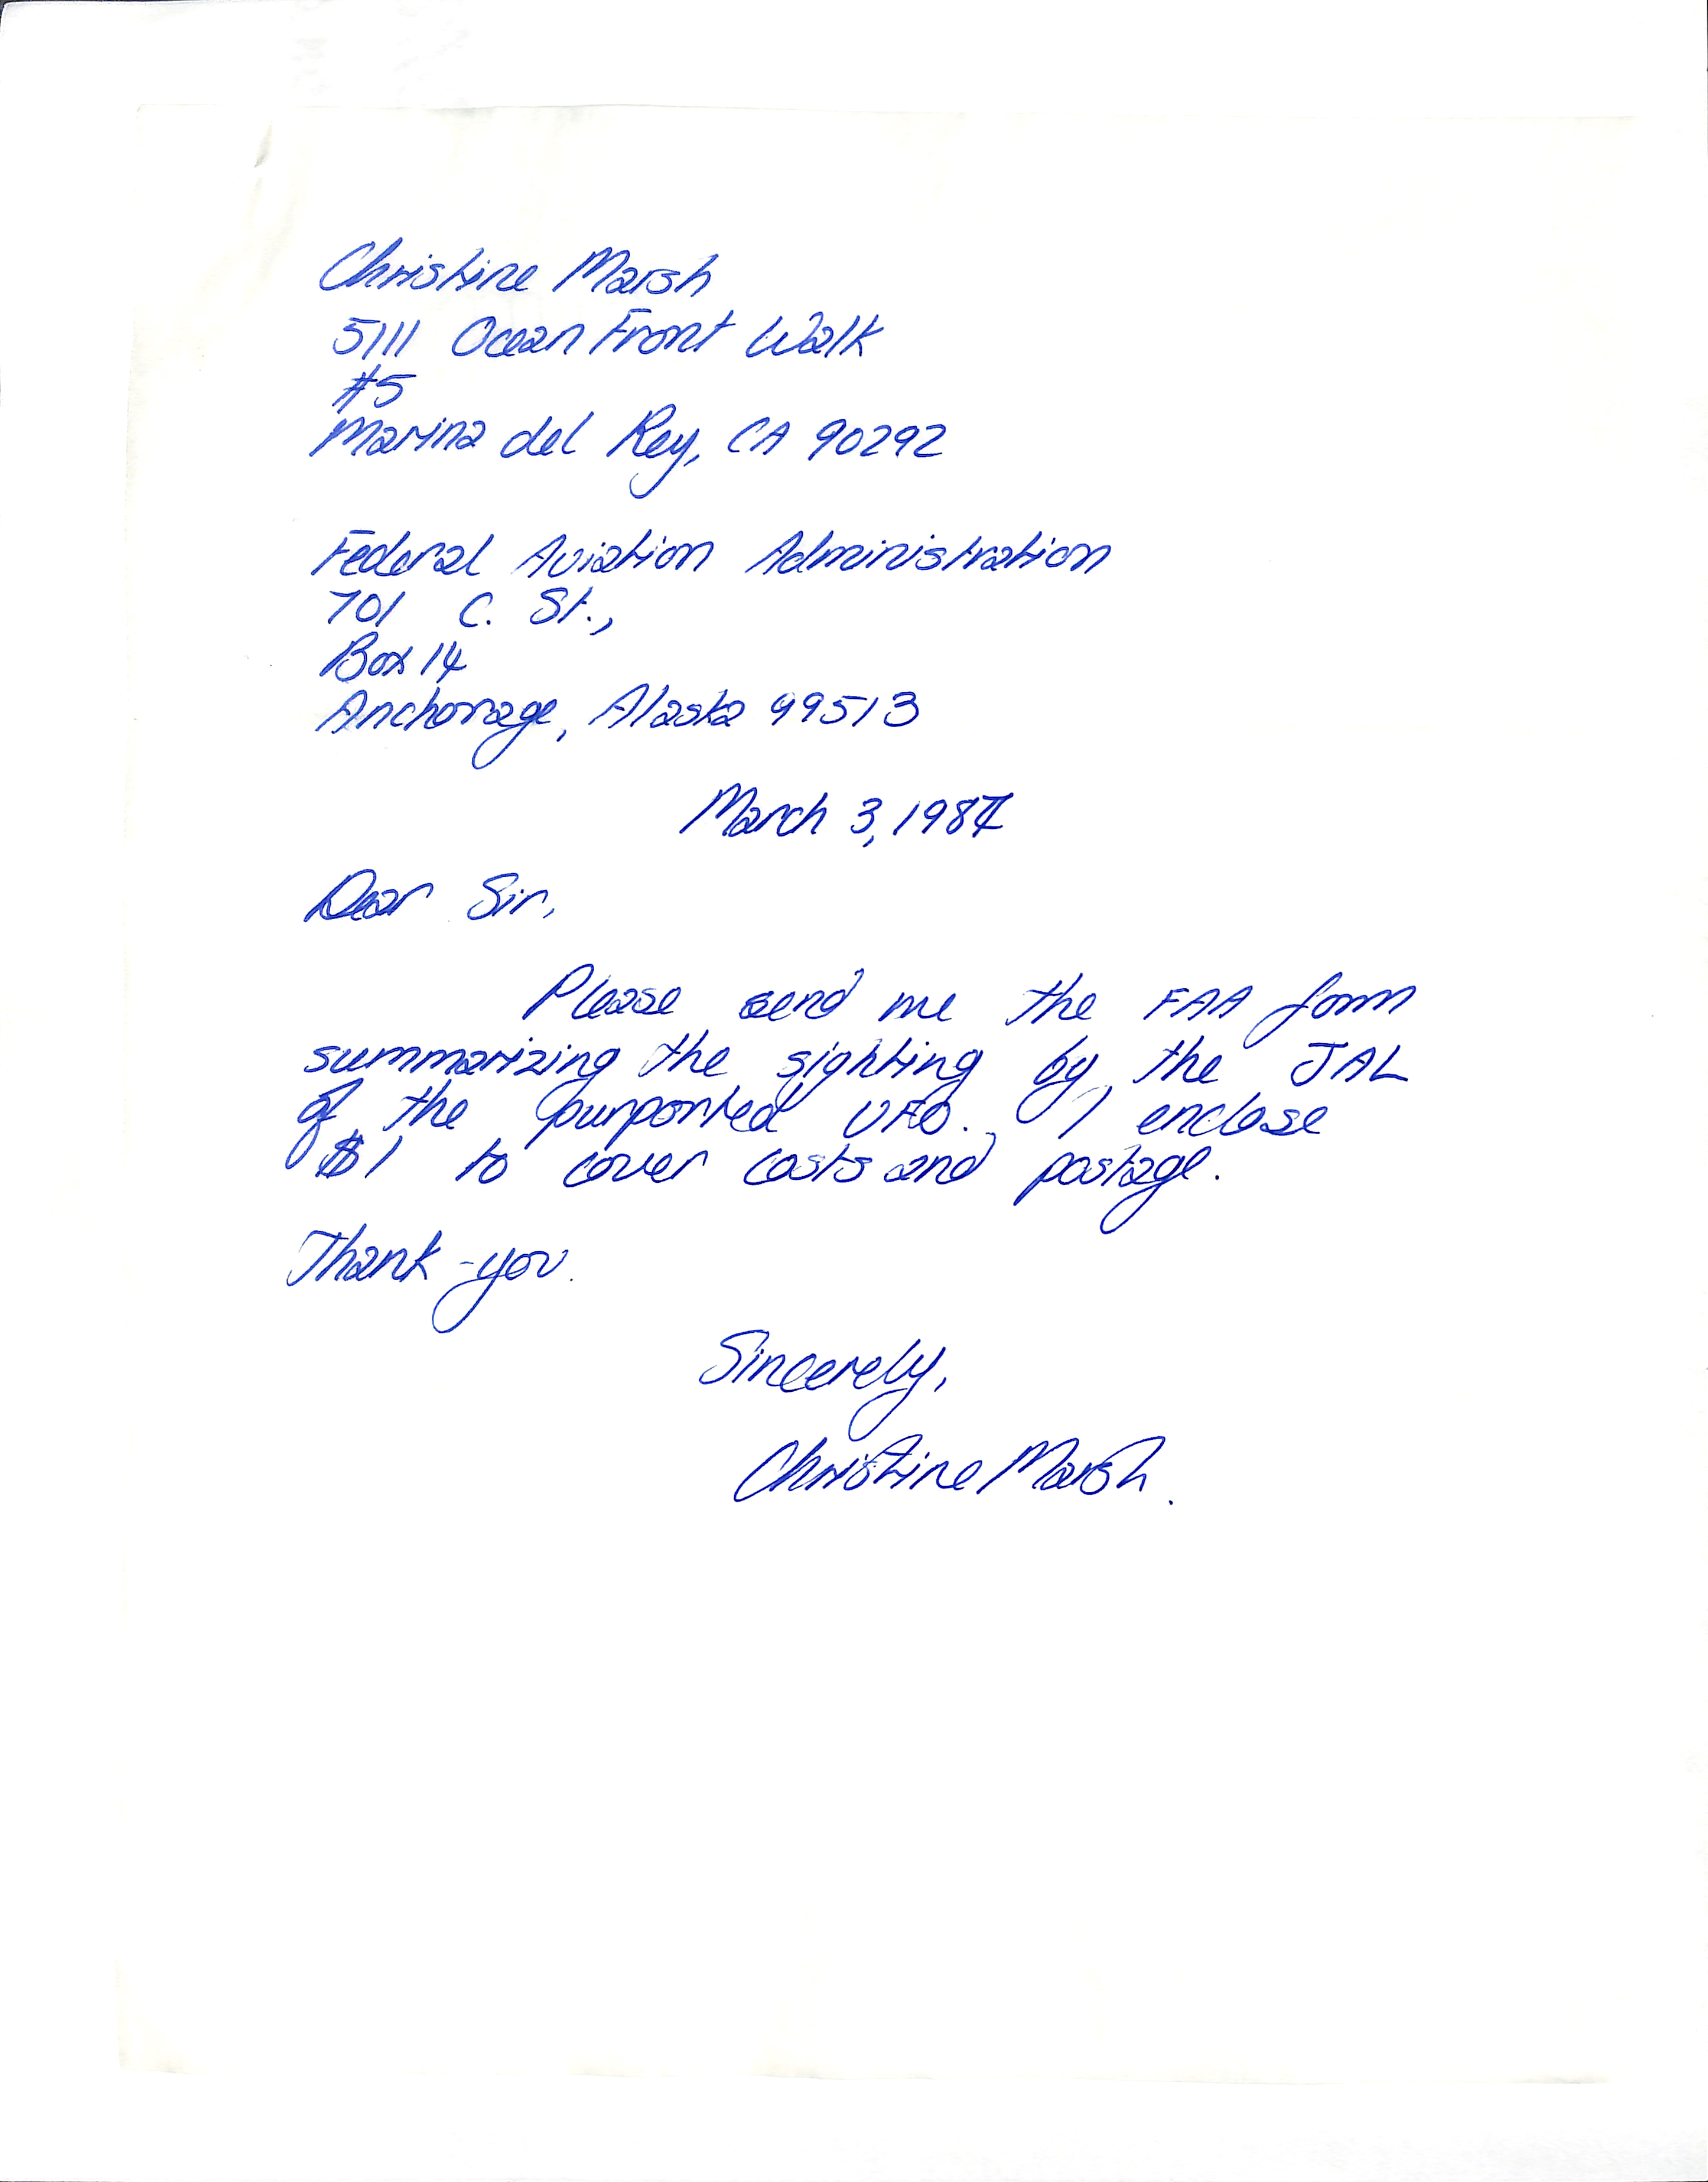 Christine Marsh
5111 Ocean Front Walk
#5
Marina del Rey, CA 90292
Federal Aviation Administration
701 C. St.,
Box 14
Anchorage, Alaska 99513
March 3, 1987
Dear Sir,
Please send me the FAA form
summarizing the sighting by the JAL
of the purported UFO. I enclose
$1 to cover costs and postage.
Thank-you.
Sincerely,
Christine Marsh.